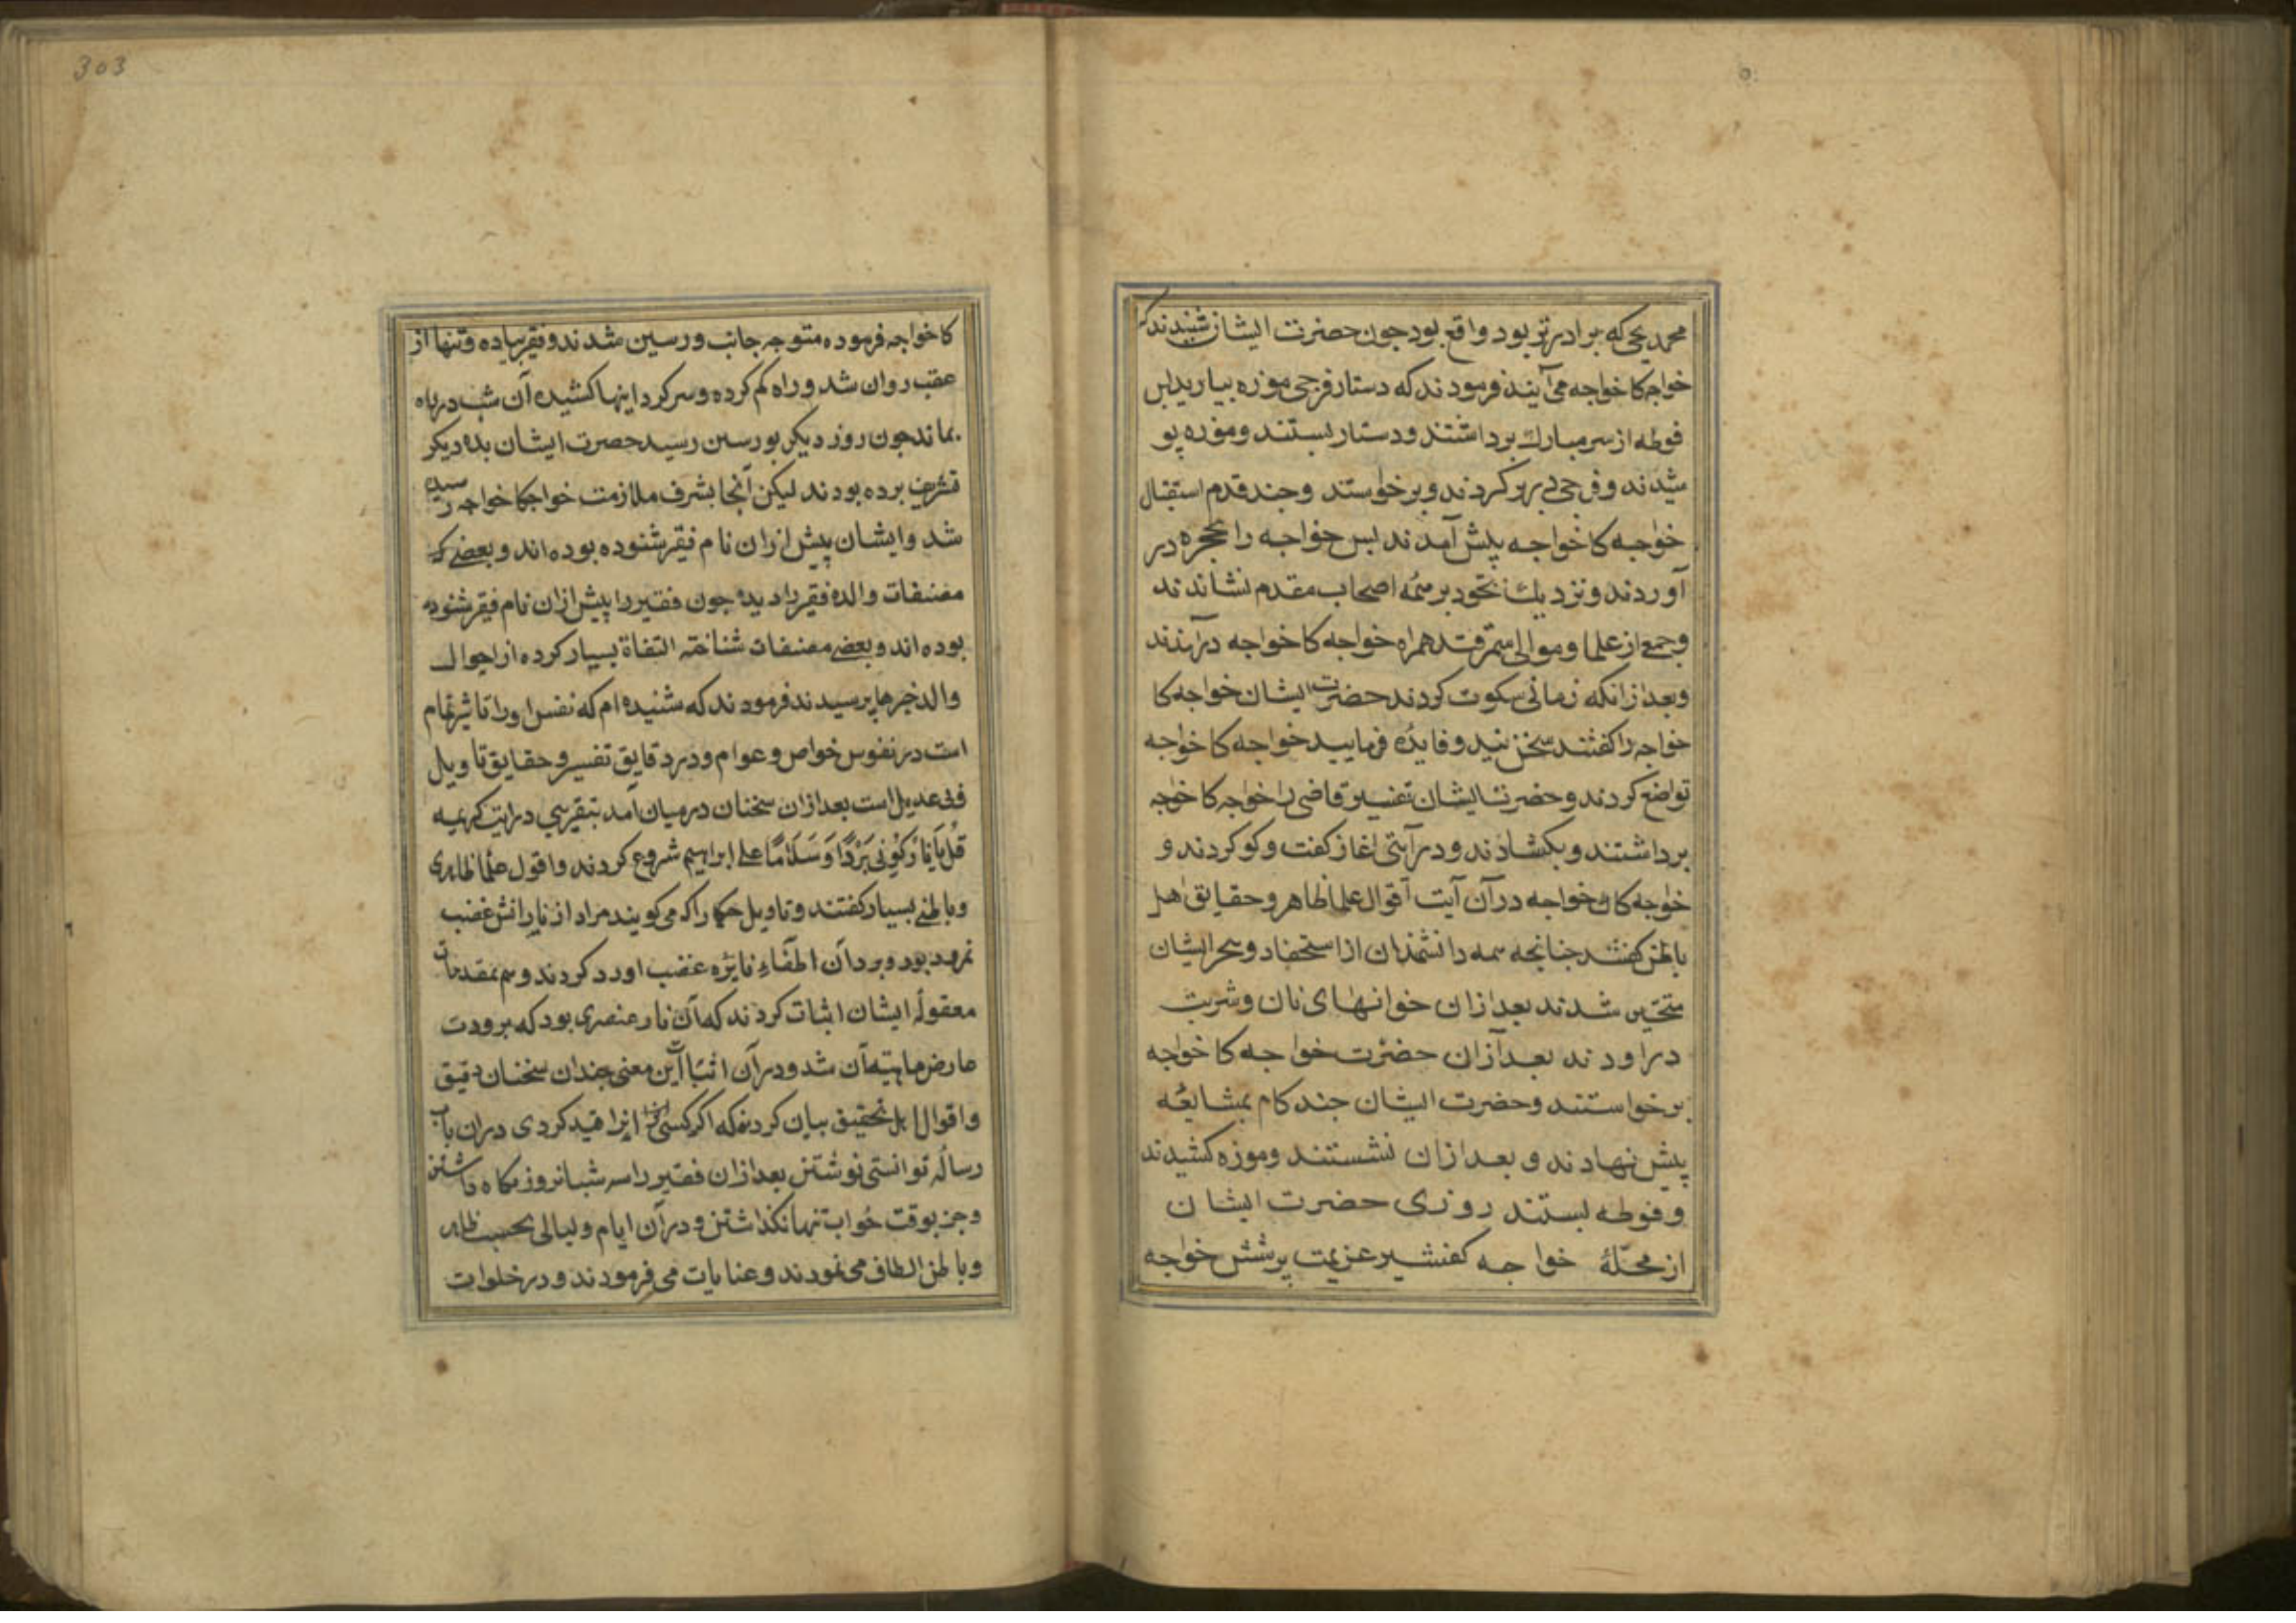 محمد یحی که برادرتر بود واقع بود جون حضرت ایشان شنیدند که
خواجه کا خواجه می آیند فرمودند که دستار فرجی موزه بیارید پس
فوطه از سر مبارک برداشتند و دستار بستند و موزه پو
شیدند و فرجی در بر کردند و برخواستند وجند قدم استقبال
خواجه کا خواجه پیش آمدند پس خواجه را بحجره در
آوردند و نزدیک بخود بر همه اصحاب مقدم نشاندند
و جمع از علما و موالی سمرقند همراه خواجه کا خواجه درآمدند
وبعد ازانکه زمانی سکوت کردند حضرت ایشان خواجه کا
خواجه را کفتند سخن و فایده فرمایید خواجه کا خواجه
تواضع کردند و حضرت ایشان تفسیر قاضی را خواجه کا خواجه
برداشتند و بکشادند و در آیتی اغاز کفت وکو کردند و
خواجه کا خواجه در آن آیت اقوال علما ظاهر و حقایق اهل
باطن کفتند جنانجه همه دانشمندان از استحضار و بحر ایشان
متحیر شدند بعد ازان خوانهای نان و شربت
در اوردند بعد ازان حضرت خواجه کا خواجه
برخواستند وحضرت ایشان جند کام بمشایعه
پیش نهادند و بعد ازان نشستند و موزه کشیدند
و فوطه بستند روزی حضرت ایشان
از محلّۀ خواجه کفشیر عزیمت پرسش خواجه
303
کا خواجه فرموده متوجه جانب ورسین شدند و فقیر پیاده و تنها از
عقب روان شد و راه کم کرده و سر کرد اینها کشیده آن شب در راه
بماند جون روز دیکر بورسین رسید حضرت ایشان بده دیکر
تشریف برده بودند لیکن آنجا بشرف ملازمت خواجکا خواجه رسیده
شد و ایشان پیش ازان نام فقیر شنوده بوده اند و بعضی
مصنفات والده فقیر را دیده جون فقیر را پیش ازان نام فقیر شنوده
بوده اند و بعضی مصنفات شناخته التفاة بسیار کرده از احوال
والد خبرها پرسیدند فرمودند که شنیده ام که نفس او را تاثیر تمام
است در نفوس خواص و عوام و در دقایق تفسیر و حقایق تاویل
فی عدیل است بعد ازان سخنان در میان آمد بتقریبی در ایت کریمه
قُل یَا نَارُ کُونی بَرْدًا وَسَلَامًا علی ابراهیم شروع کردند و اقول علما ظاهری
و باطنی بسیار کفتند و تاویل حکما را که می کویند مراد از نار اتش غضب
نمرود بود و برد آن اطفاء نایره غضب او رد کردند و هم بمقدمات
معقولۀ ایشان اثبات کردند که آن نار عنصری بود که برودت
عارض ماهیته آن شد و در آن اثبات این معنی جندان سخنان دقیق
و اقوال تحقیق بیان کردند که اکر کسی انرا قید کردی در ان باب
رسالۀ توانستی نوشتن بعد ازان فقیر را سه شبانروز نکاه داشتن
و جز بوقت خواب تنها نکذاشتن و در آن ایام و لیالی بحسب ظاهر
و باطن الطاف می نمودند و عنایات می فرمودند و در خلوات